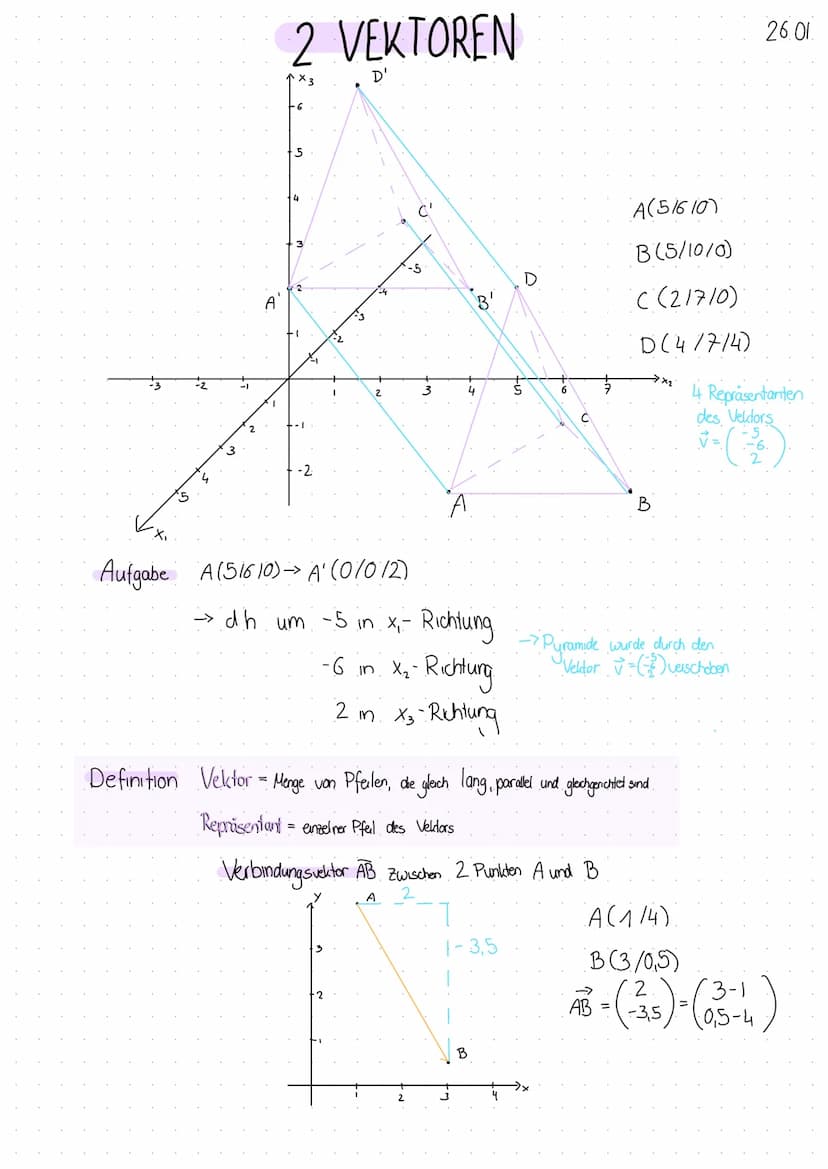 2 VEKTOREN
26.01
x3
D'
6
5
4
3
2
1
-1
-2
C'
A'
B'
D
C
A
B
-5
-4
-3
-2
-1
1
2
3
4
5
x1
-3
-2
-1
1
2
3
4
5
6
7
x2
A(5/6/0)
B(5/10/0)
C(2/7/0)
D(4/7/4)
4 Repräsentanten
des Vektors
v⃗ = (-5 -6 2)
Aufgabe A(5/6/0) → A'(0/0/2)
→ dh um -5 in x1-Richtung
-6 in x2-Richtung
2 in x3-Richtung
→ Pyramide wurde durch den
Vektor v⃗ = (-5 -6 2) verschoben
Definition Vektor = Menge von Pfeilen, die gleich lang, parallel und gleichgerichtet sind
Repräsentant = einzelner Pfeil des Vektors
Verbindungsvektor AB⃗ zwischen 2 Punkten A und B
y
A
2
-3,5
3
2
1
B
1
2
3
4
x
A(1/4)
B(3/0,5)
AB⃗ = (2 -3,5) = (3-1 0,5-4)